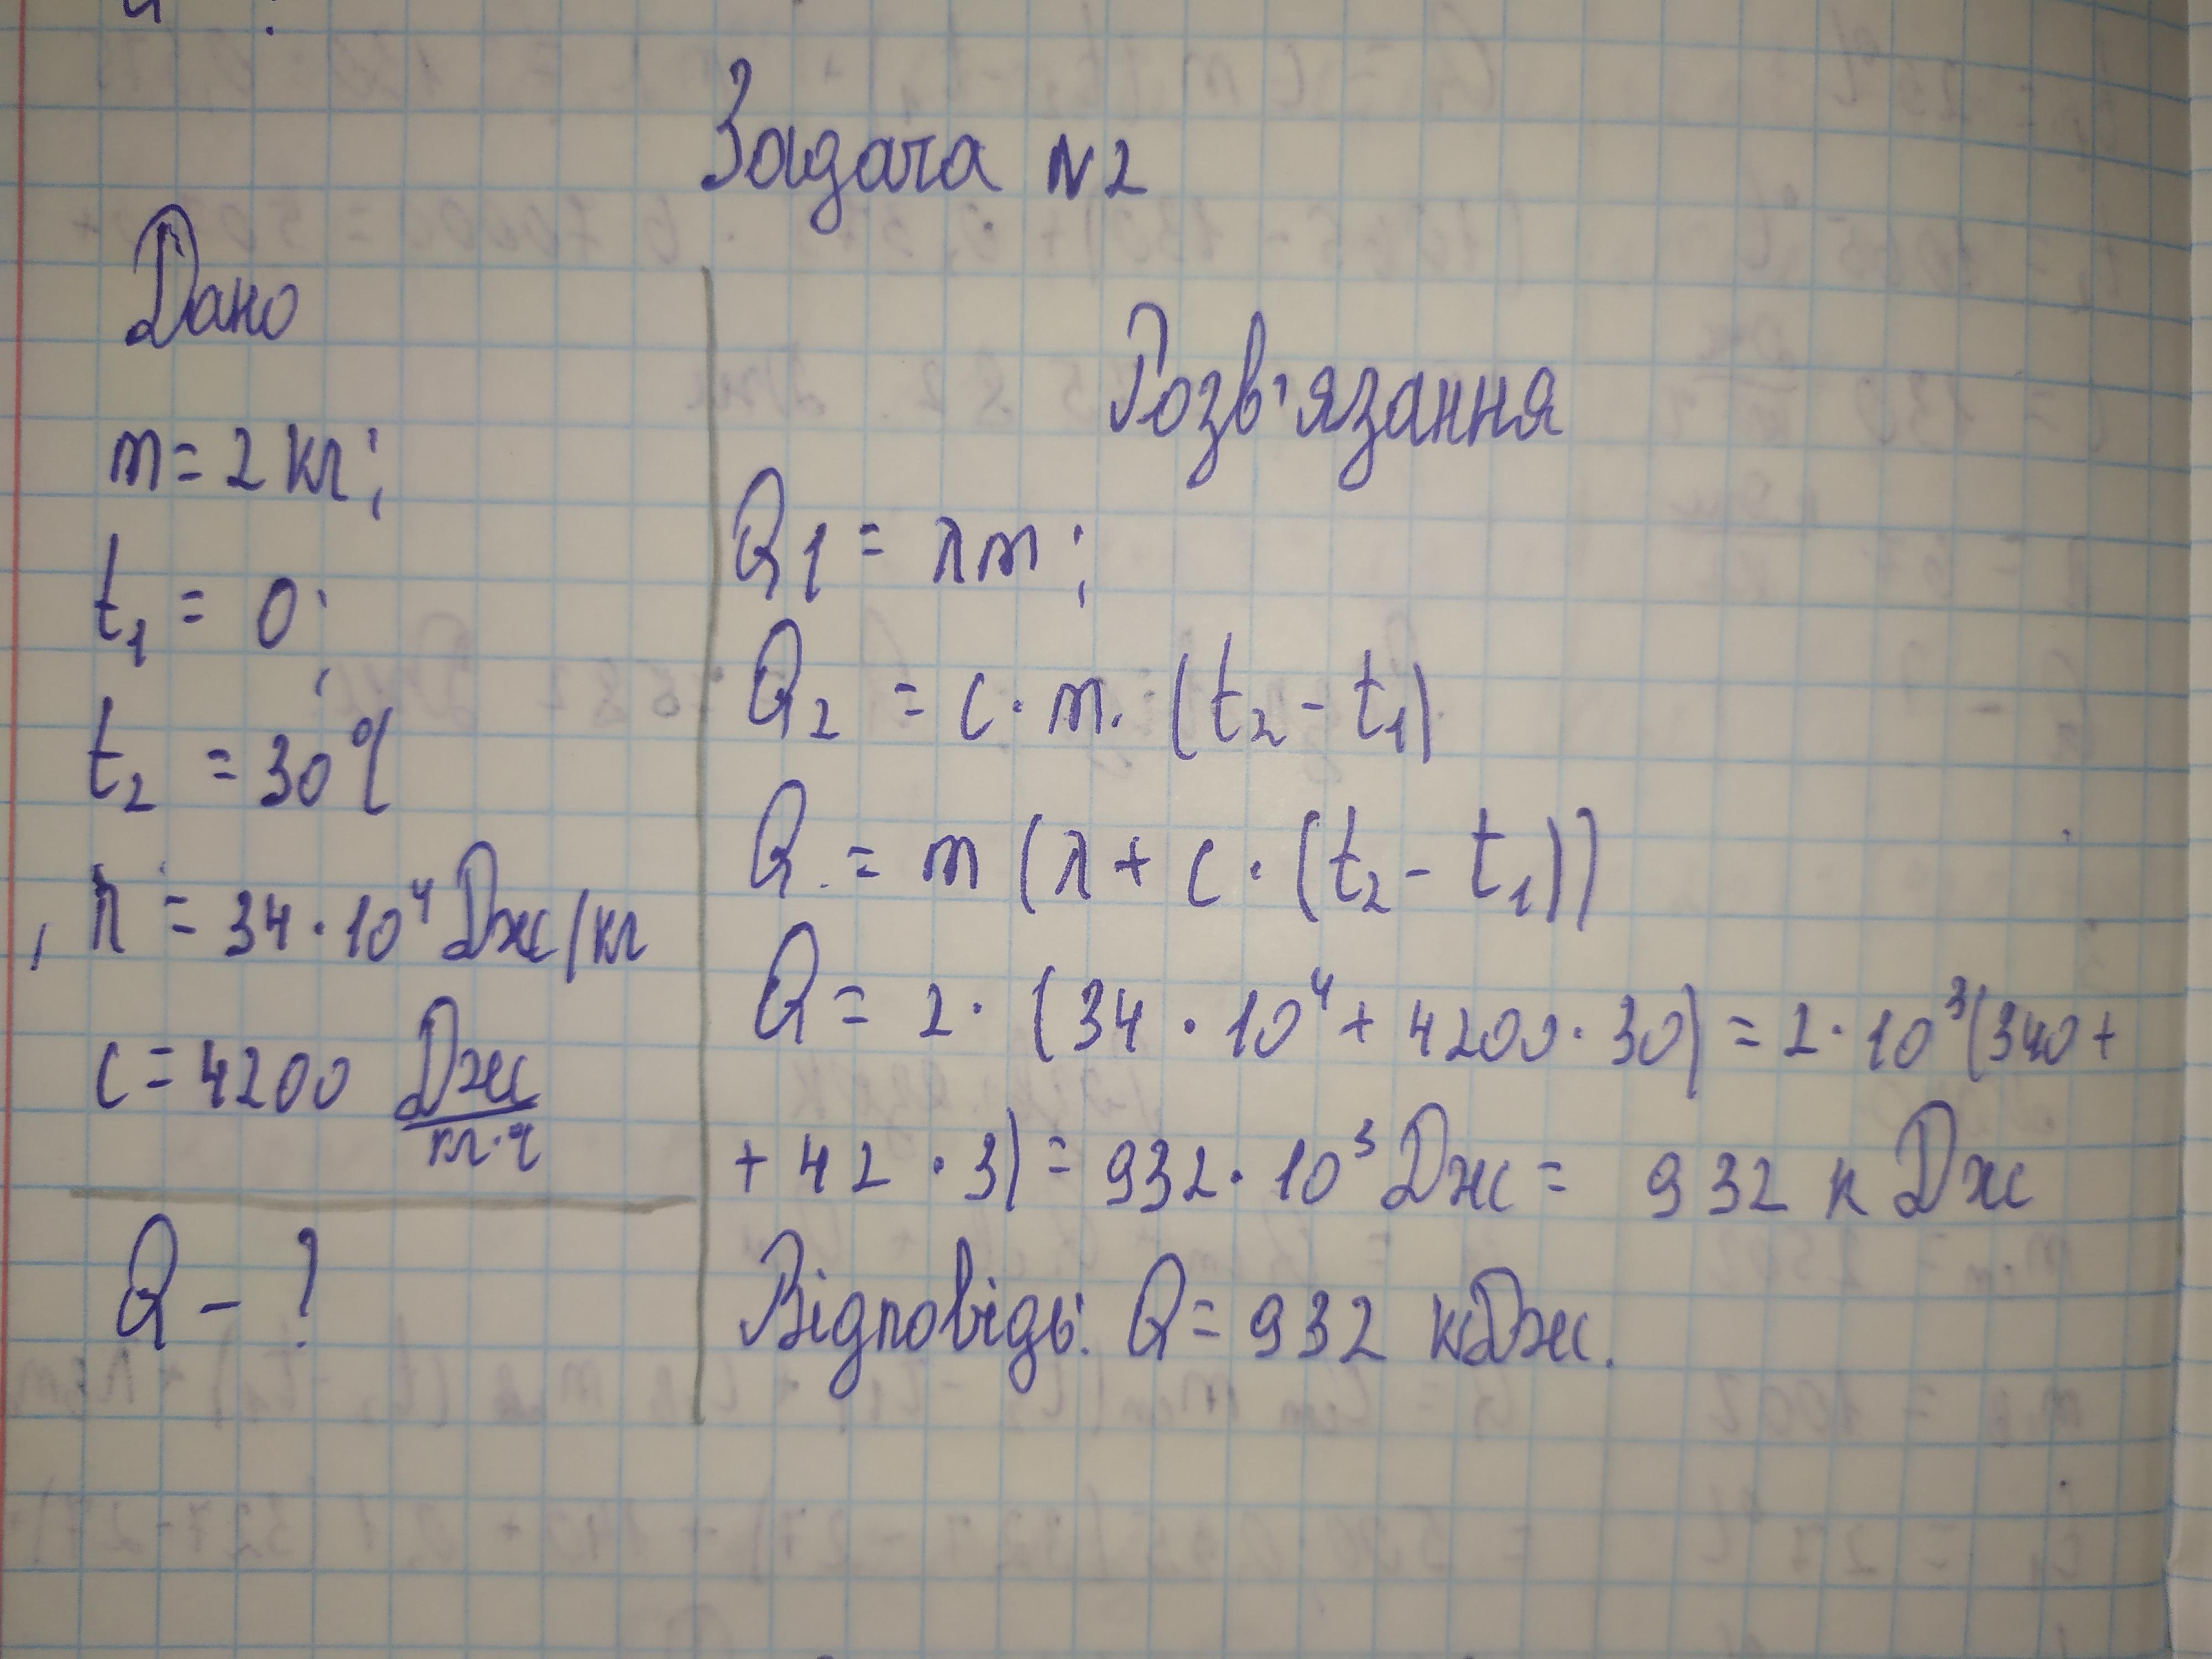 Задача N2
Дано
m = 2 кг;
t₁ = 0;
t₂ = 30°C
λ = 34 · 10⁴ Дж/кг
c = 4200 Дж/кг·°C
Q – ?
Розв'язання
Q1 = λm;
Q₂ = c · m · (t₂ – t₁)
Q = m (λ + c · (t₂ – t₁))
Q = 2 · (34 · 10⁴ + 4200 · 30) = 2 · 10³(340 +
+ 42 · 3) = 932 · 10³ Дж = 932 к Дж
Відповідь: Q = 932 кДж.